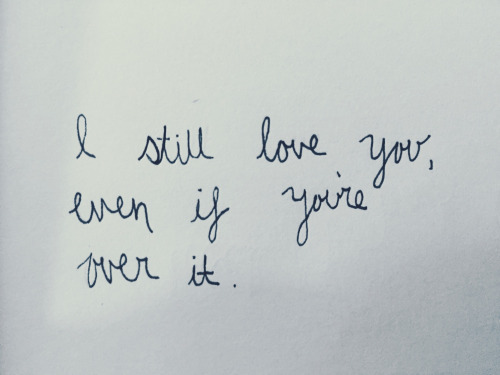 I still love you,
even if you're
over it.